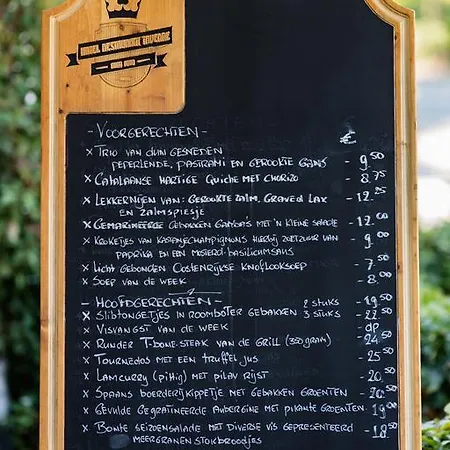 HOTEL RESTAURANT TAVERNE
- VOORGERECHTEN - €
x TRIO VAN DUN GESNEDEN
PEPERLENDE, PASTRAMI EN GEROOKTE GANS - 9.50
x CATALAANSE HARTIGE QUICHE MET CHORIZO - 8.75
x LEKKERNIJEN VAN: GEROOKTE ZALM, GRAVED LAX - 12.25
EN ZALMSPIESJE
x GEMARINEERDE GEBAKKEN GAMBA'S MET 'N KLEINE SALADE - 12.00
x KROKETJES VAN KASTANJECHAMPIGNONS HIERBIJ ZOETZUUR VAN - 9.00
PAPRIKA EN EEN MOSTERD-BASILICUMSAUS
x LICHT GEBONDEN OOSTENRIJKSE KNOFLOOKSOEP - 7.50
x SOEP VAN DE WEEK - 8.00
- HOOFDGERECHTEN - 2 STUKS - 19.50
x SLIBTONGETJES IN ROOMBOTER GEBAKKEN 3 STUKS - 22.50
x VISVANGST VAN DE WEEK - DP
x RUNDER T-BONE-STEAK VAN DE GRILL (350 GRAM) - 24.50
x TOURNEDOS MET EEN TRUFFEL JUS - 25.50
x LAMCURRY (PITTIG) MET PILAV RIJST - 20.50
x SPAANS BOERDERIJKIPPETJE MET GEBAKKEN GROENTEN - 20.50
x GEVULDE GEGRATINEERDE AUBERGINE MET PIKANTE GROENTEN - 19.00
x BONTE SEIZOENSALADE MET DIVERSE VIS GEPRESENTEERD - 18.50
MEERGRANEN STOKBROODJES